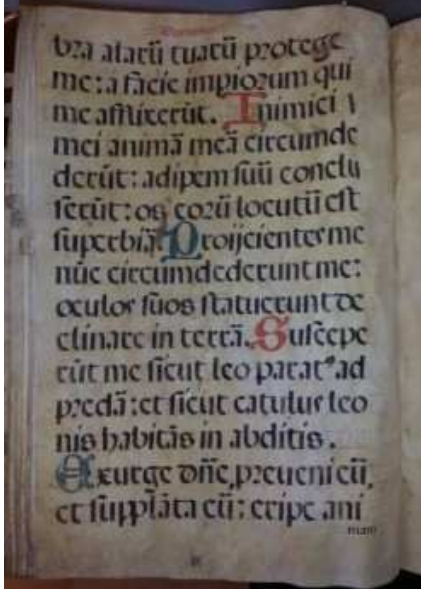 bra alarū tuarū protege
me: a facie impiorum qui
me afflixerūt. Inimici
mei animā meā circumde
derūt: adipem suū conclu
serūt: os eorū locutū est
superbiā. Proijcientes me
nūc circumdederunt me:
oculos suos statuerunt de
clinare in terrā. Suscepe
rūt me sicut leo parat⁹ ad
predā: et sicut catulus leo
nis habitās in abditis.
Exurge dñe, preueni eū,
et supplāta eū: eripe ani
mam